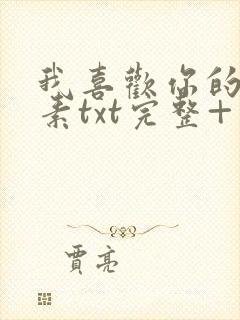 我喜歡你的
素txt完整+
賈亮